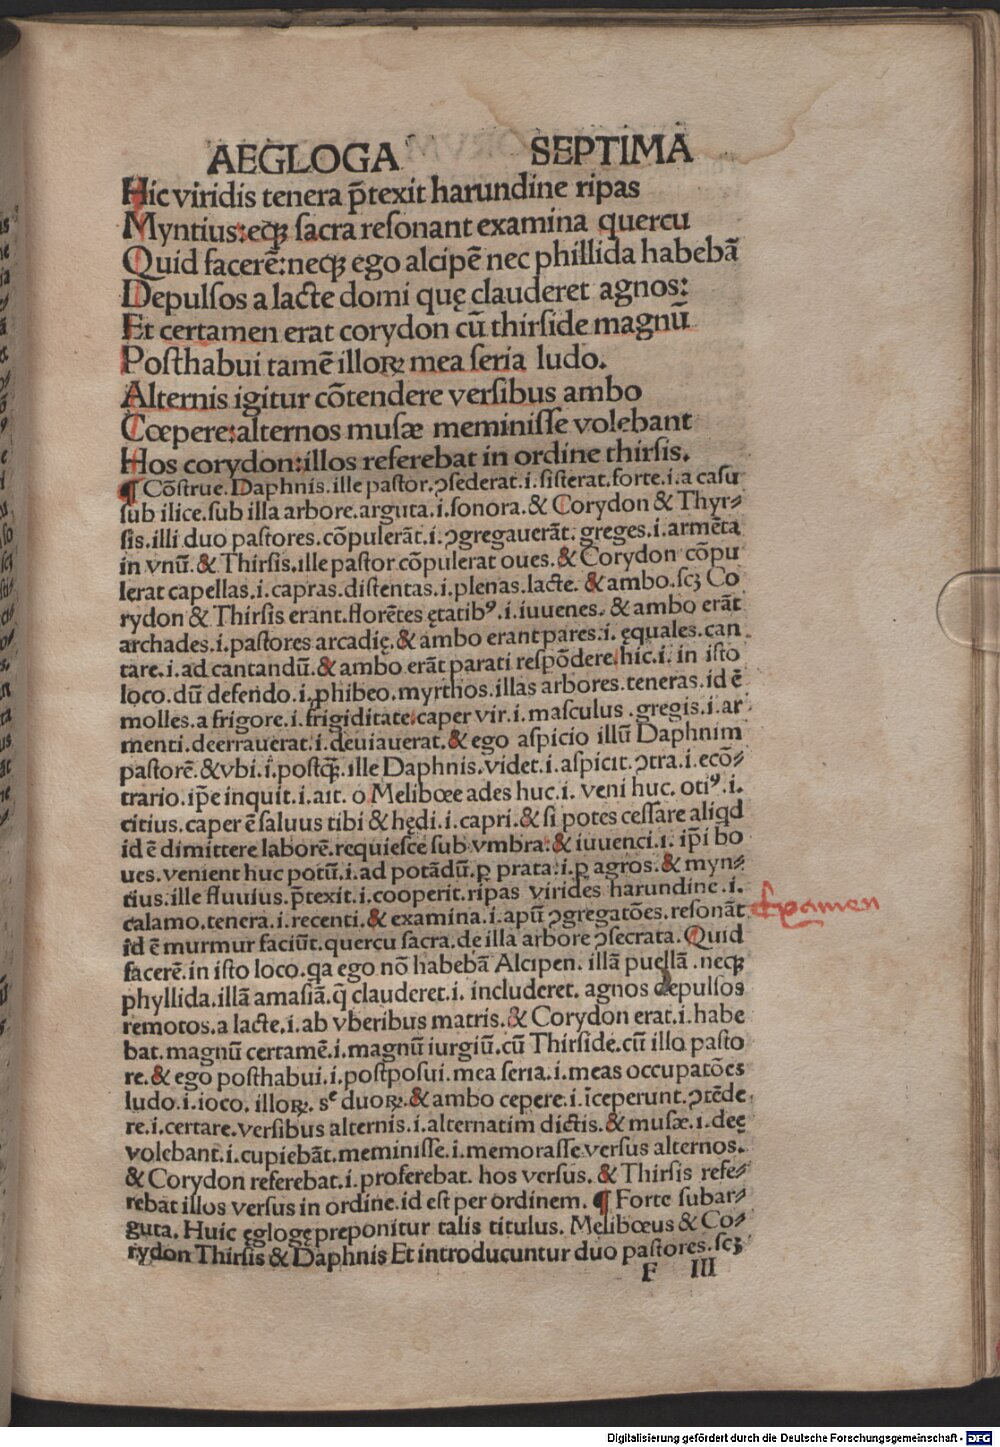 AEGLOGA SEPTIMA
Hic viridis tenera p̄texit harundine ripas
Myntius:eqꝫ sacra resonant examina quercu
Quid facerē:neqꝫ ego alcipē nec phillida habebā
Depulsos a lacte domi quę clauderet agnos:
Et certamen erat corydon cū thirside magnū
Posthabui tamē illoꝝ mea seria ludo.
Alternis igitur cōtendere versibus ambo
Cœpere:alternos musæ meminisse volebant
Hos corydon:illos referebat in ordine thirsis.
¶ Cōstrue.Daphnis.ille pastor.ↄsederat.i.sisterat.forte.i.a casu
sub ilice.sub illa arbore.arguta.i.sonora.& Corydon & Thyr⸗
sis.illi duo pastores.cōpulerāt.i.ↄgregauerāt.greges.i.armēta
in vnū.& Thirsis.ille pastor cōpulerat oues.& Corydon cōpu
lerat capellas.i.capras.distentas.i.plenas.lacte. & ambo.scꝫ Co
rydon & Thirsis erant.florētes ętatibꝰ.i.iuuenes. & ambo erāt
archades.i.pastores arcadię.& ambo erant pares.i. ęquales.can
tare.i.ad cantandū.& ambo erāt parati respōdere.hic.i. in isto
loco.dū defendo.i.phibeo.myrthos.illas arbores.teneras.id ē
molles.a frigore.i.frigiditate.caper vir.i.masculus .gregis.i.ar
menti.deerrauerat.i.deuiauerat.& ego aspicio illū Daphnim
pastorē.&vbi.i.postq̄ꝫ.ille Daphnis.videt.i.aspicit.ↄtra.i.ecō⸗
trario.ip̄e inquit.i.ait. o Melibœe ades huc.i. veni huc. otiꝰ.i.
citius.caper ē saluus tibi & hędi.i.capri.& si potes cessare aliqd
id ē dimittere laborē.requiesce sub vmbra.& iuuenci.i. ip̄i bo
ues.venient huc potū.i.ad potādū.ꝑ prata.i.ꝑ agros.& myn⸗
tius.ille fluuius.p̄texit.i.cooperit.ripas virides harundine.i.
calamo.tenera.i.recenti.& examina.i.apū ↄgregatōes.resonāt
Examen
id ē murmur faciūt.quercu sacra.de illa arbore ↄsecrata.Quid
facerē.in isto loco.qa ego nō habebā Alcipen. illā puellā .neqꝫ
phyllida.illā amasiā.q̄ clauderet.i. includeret. agnos depulsos
remotos.a lacte.i.ab vberibus matris.& Corydon erat.i.habe
bat.magnū certamē.i.magnū iurgiū.cū Thirside.cū illo pasto
re.& ego posthabui.i.postposui.mea seria.i.meas occupatōes
ludo.i.ioco. illoꝝ. sᵉ duoꝝ.& ambo cepere.i.īceperunt.ↄtēde
re.i.certare.versibus alternis.i.alternatim dictis.& musæ.i.deę
volebant.i.cupiebāt.meminisse.i.memorasse.versus alternos.
& Corydon referebat.i.proferebat. hos versus. & Thirsis refe⸗
rebat illos versus in ordine.id est per ordinem. ¶ Forte subar⸗
guta. Huic ęglogę preponitur talis titulus. Melibœus & Co⸗
rydon Thirsis & Daphnis Et introducuntur duo pastores.scꝫ
F III
Digitalisierung gefördert durch die Deutsche Forschungsgemeinschaft - DFG